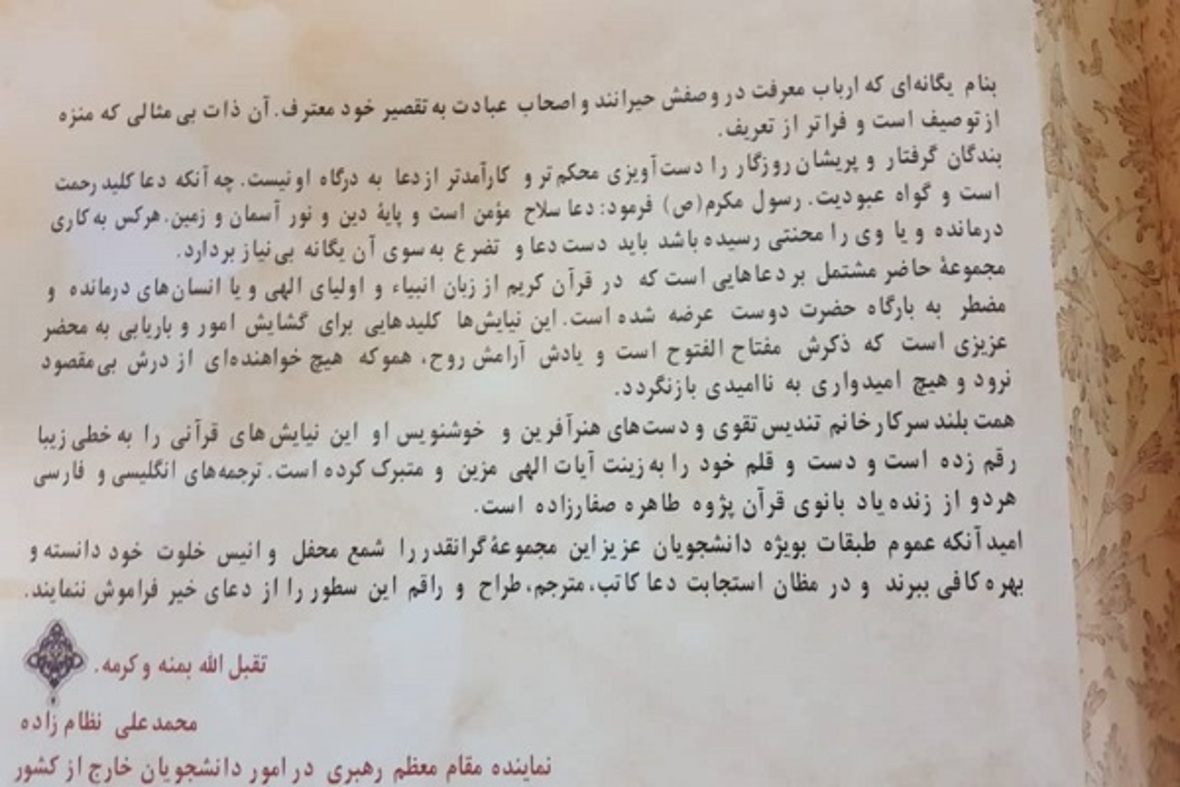 بنام یگانه‌ای که ارباب معرفت در وصفش حیرانند و اصحاب عبادت به تقصیر خود معترف. آن ذات بی مثالی که منزه
از توصیف است و فراتر از تعریف.
بندگان گرفتار و پریشان روزگار را دست‌آویزی محکم‌تر و کارآمدتر از دعا به درگاه او نیست. چه آنکه دعا کلید رحمت
است و گواه عبودیت. رسول مکرم(ص) فرمود: دعا سلاح مؤمن است و پایۀ دین و نور آسمان و زمین. هرکس به کاری
درمانده و یا وی را محنتی رسیده باشد باید دست دعا و تضرع به سوی آن یگانه بی‌نیاز بردارد.
مجموعۀ حاضر مشتمل بر دعاهایی است که در قرآن کریم از زبان انبیاء و اولیای الهی و یا انسان‌های درمانده و
مضطر به بارگاه حضرت دوست عرضه شده است. این نیایش‌ها کلیدهایی برای گشایش امور و باریابی به محضر
عزیزی است که ذکرش مفتاح الفتوح است و یادش آرامش روح، هموکه هیچ خواهنده‌ای از درش بی‌مقصود
نرود و هیچ امیدواری به ناامیدی بازنگردد.
همت بلند سرکار خانم تندیس تقوی و دست‌های هنرآفرین و خوشنویس او این نیایش‌های قرآنی را به خطی زیبا
رقم زده است و دست و قلم خود را به زینت آیات الهی مزین و متبرک کرده است. ترجمه‌های انگلیسی و فارسی
هردو از زنده‌یاد بانوی قرآن پژوه طاهره صفارزاده است.
امید آنکه عموم طبقات بویژه دانشجویان عزیز این مجموعۀ گرانقدر را شمع محفل و انیس خلوت خود دانسته و
بهره کافی ببرند و در مظان استجابت دعا کاتب، مترجم، طراح و راقم این سطور را از دعای خیر فراموش ننمایند.
تقبل الله بمنه و کرمه.
محمدعلی نظام زاده
نماینده مقام معظم رهبری در امور دانشجویان خارج از کشور